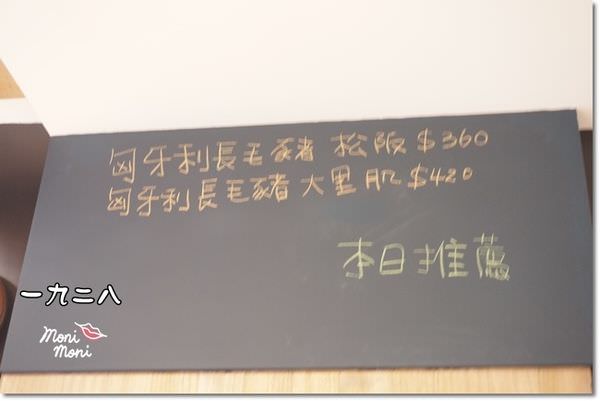 匈牙利長毛豬 松阪 $360
匈牙利長毛豬 大里肌 $420
本日推薦
一九二八
Moni
Moni